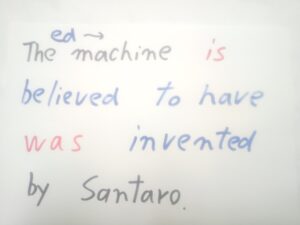 ed →
The machine is
believed to have
was invented
by Santaro.